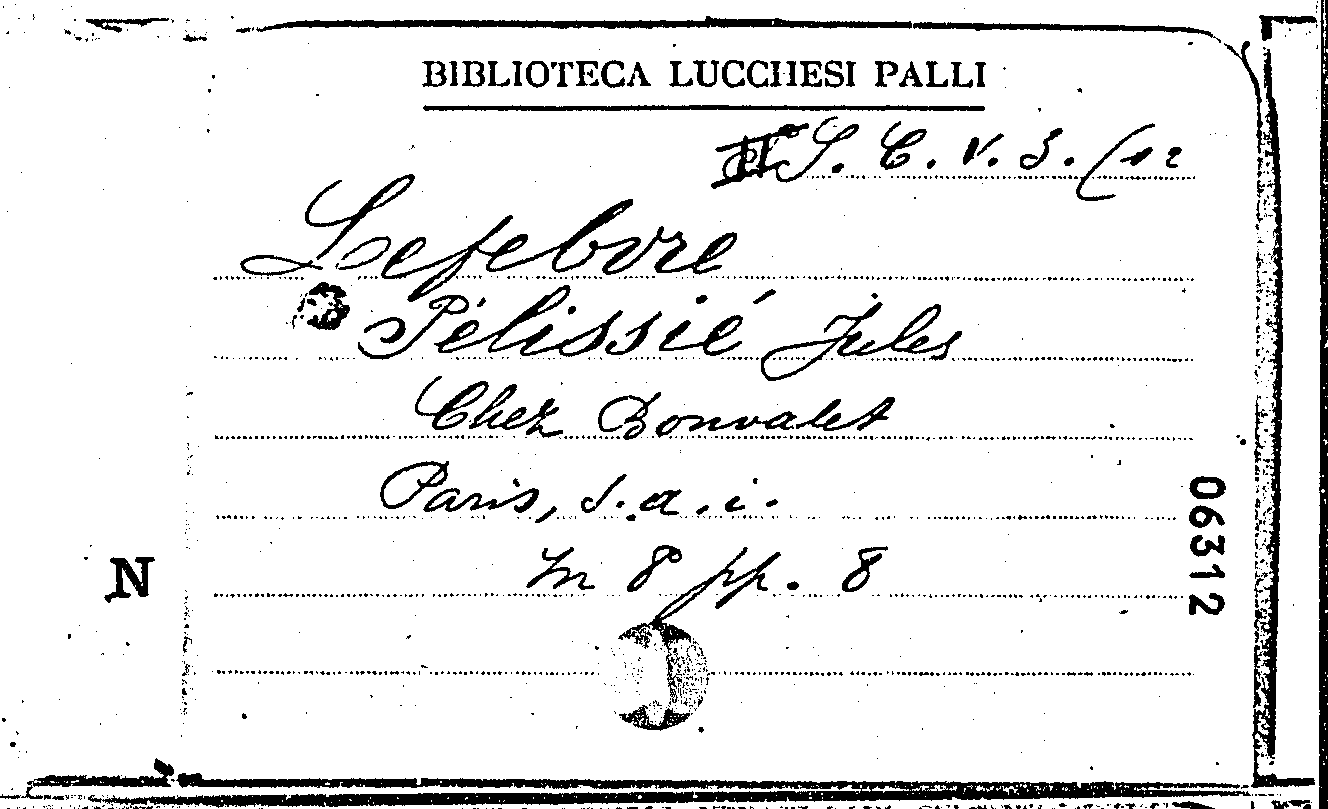 BIBLIOTECA LUCCHESI PALLI
S. C. V. 3. (12
Lefebvre
Pélissié Jules
Chez Bonvalet
Paris, s.a.i.
In 8º pp. 8
N
06312